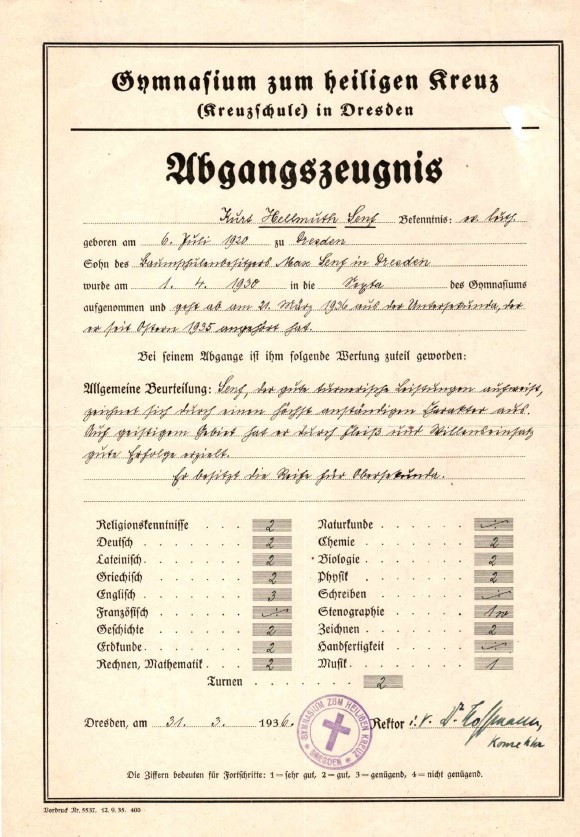 Gymnasium zum heiligen Kreuz
(Kreuzschule) in Dresden
Abgangszeugnis
Kurt Hellmuth Senf Bekenntnis: ev. luth.
geboren am 6. Juli 1920 zu Dresden
Sohn des Baumschulenbesitzers Max Senf in Dresden
wurde am 1. 4. 1930 in die Sexta des Gymnasiums
aufgenommen und geht ab am 21. März 1936 aus der Untersekunda, der
er seit Ostern 1935 angehört hat.
Bei seinem Abgange ist ihm folgende Wertung zuteil geworden:
Allgemeine Beurteilung: Senf, der gute turnerische Leistungen aufweist,
zeichnet sich durch einen höchst anständigen Charakter aus.
Auf geistigem Gebiet hat er durch Fleiß und Willenseinsatz
gute Erfolge erzielt.
Er besitzt die Reife für Obersekunda.
Religionskenntnisse . . . 2
Deutsch . . . . . . 2
Lateinisch . . . . . . 2
Griechisch . . . . . 2
Englisch . . . . . . 3
Französisch . . . . . ./.
Geschichte . . . . . 2
Erdkunde . . . . . . 2
Rechnen, Mathematik . . 2
Naturkunde . . . . . ./.
Chemie . . . . . . 2
Biologie . . . . . . 2
Physik . . . . . . 2
Schreiben . . . . . ./.
Stenographie . . . . 1
Zeichnen . . . . . 2
Handfertigkeit . . . . ./.
Musik . . . . . . 1
Turnen . . . . . . 2
Dresden, am 31. 3. 1936.
GYMNASIUM ZUM HEILIGEN KREUZ
DRESDEN
Rektor i. V. Dr. Hoffmann,
Konrektor
Die Ziffern bedeuten für Fortschritte: 1 = sehr gut, 2 = gut, 3 = genügend, 4 = nicht genügend.
Vordruck Nr. 5537. 12. 9. 35. 400